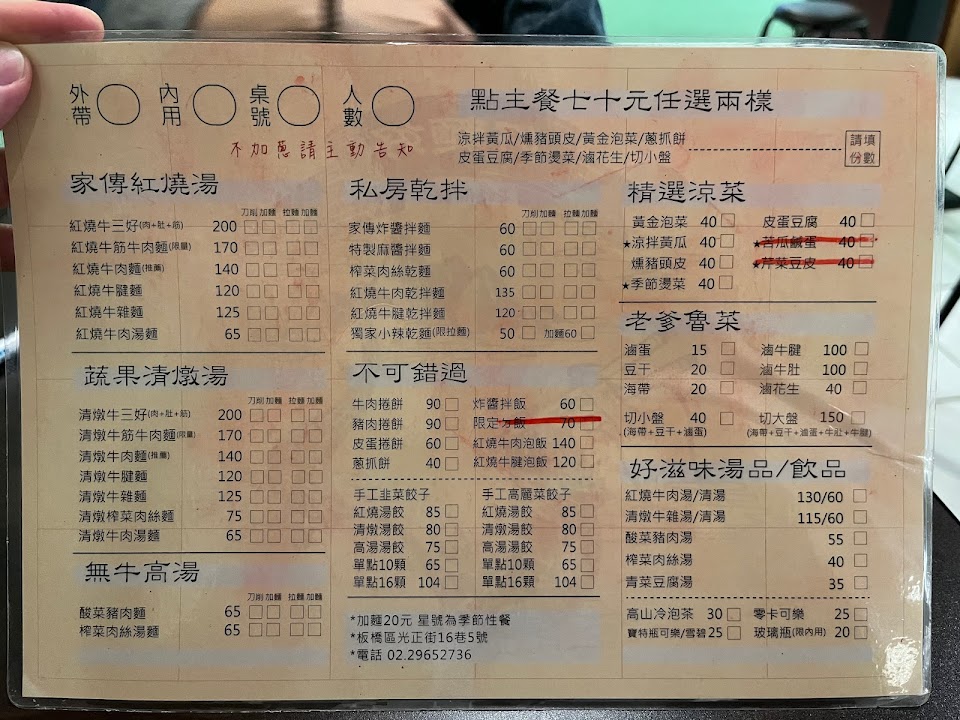 外帶 內用 桌號 人數
不加蔥請主動告知
點主餐七十元任選兩樣
涼拌黃瓜/燻豬頭皮/黃金泡菜/蔥抓餅
皮蛋豆腐/季節燙菜/滷花生/切小盤
請填份數
家傳紅燒湯
刀削 加麵 拉麵 加麵
紅燒牛三好(肉+肚+筋) 200
紅燒牛筋牛肉麵(限量) 170
紅燒牛肉麵(推薦) 140
紅燒牛腱麵 120
紅燒牛雜麵 125
紅燒牛肉湯麵 65
蔬果清燉湯
刀削 加麵 拉麵 加麵
清燉牛三好(肉+肚+筋) 200
清燉牛筋牛肉麵(限量) 170
清燉牛肉麵(推薦) 140
清燉牛腱麵 120
清燉牛雜麵 125
清燉榨菜肉絲麵 75
清燉牛肉湯麵 65
無牛高湯
刀削 加麵 拉麵 加麵
酸菜豬肉麵 65
榨菜肉絲湯麵 65
私房乾拌
刀削 加麵 拉麵 加麵
家傳炸醬拌麵 60
特製麻醬拌麵 60
榨菜肉絲乾麵 60
紅燒牛肉乾拌麵 135
紅燒牛腱乾拌麵 120
獨家小辣乾麵(限拉麵) 50 加麵60
不可錯過
牛肉捲餅 90 炸醬拌飯 60
豬肉捲餅 90 限定 飯 70
皮蛋捲餅 60 紅燒牛肉泡飯 140
蔥抓餅 40 紅燒牛腱泡飯 120
手工韭菜餃子 手工高麗菜餃子
紅燒湯餃 85 紅燒湯餃 85
清燉湯餃 80 清燉湯餃 80
高湯湯餃 75 高湯湯餃 75
單點10顆 65 單點10顆 65
單點16顆 104 單點16顆 104
*加麵20元 星號為季節性餐
*板橋區光正街16巷5號
*電話 02.29652736
精選涼菜
黃金泡菜 40 皮蛋豆腐 40
★涼拌黃瓜 40 ★苦瓜鹹蛋 40
燻豬頭皮 40 ★芹菜豆皮 40
★季節燙菜 40
老爹魯菜
滷蛋 15 滷牛腱 100
豆干 20 滷牛肚 100
海帶 20 滷花生 40
切小盤 40 切大盤 150
(海帶+豆干+滷蛋) (海帶+豆干+滷蛋+牛肚+牛腱)
好滋味湯品/飲品
紅燒牛肉湯/清湯 130/60
清燉牛雜湯/清湯 115/60
酸菜豬肉湯 55
榨菜肉絲湯 40
青菜豆腐湯 35
高山冷泡茶 30 零卡可樂 25
寶特瓶可樂/雪碧 25 玻璃瓶(限內用) 20